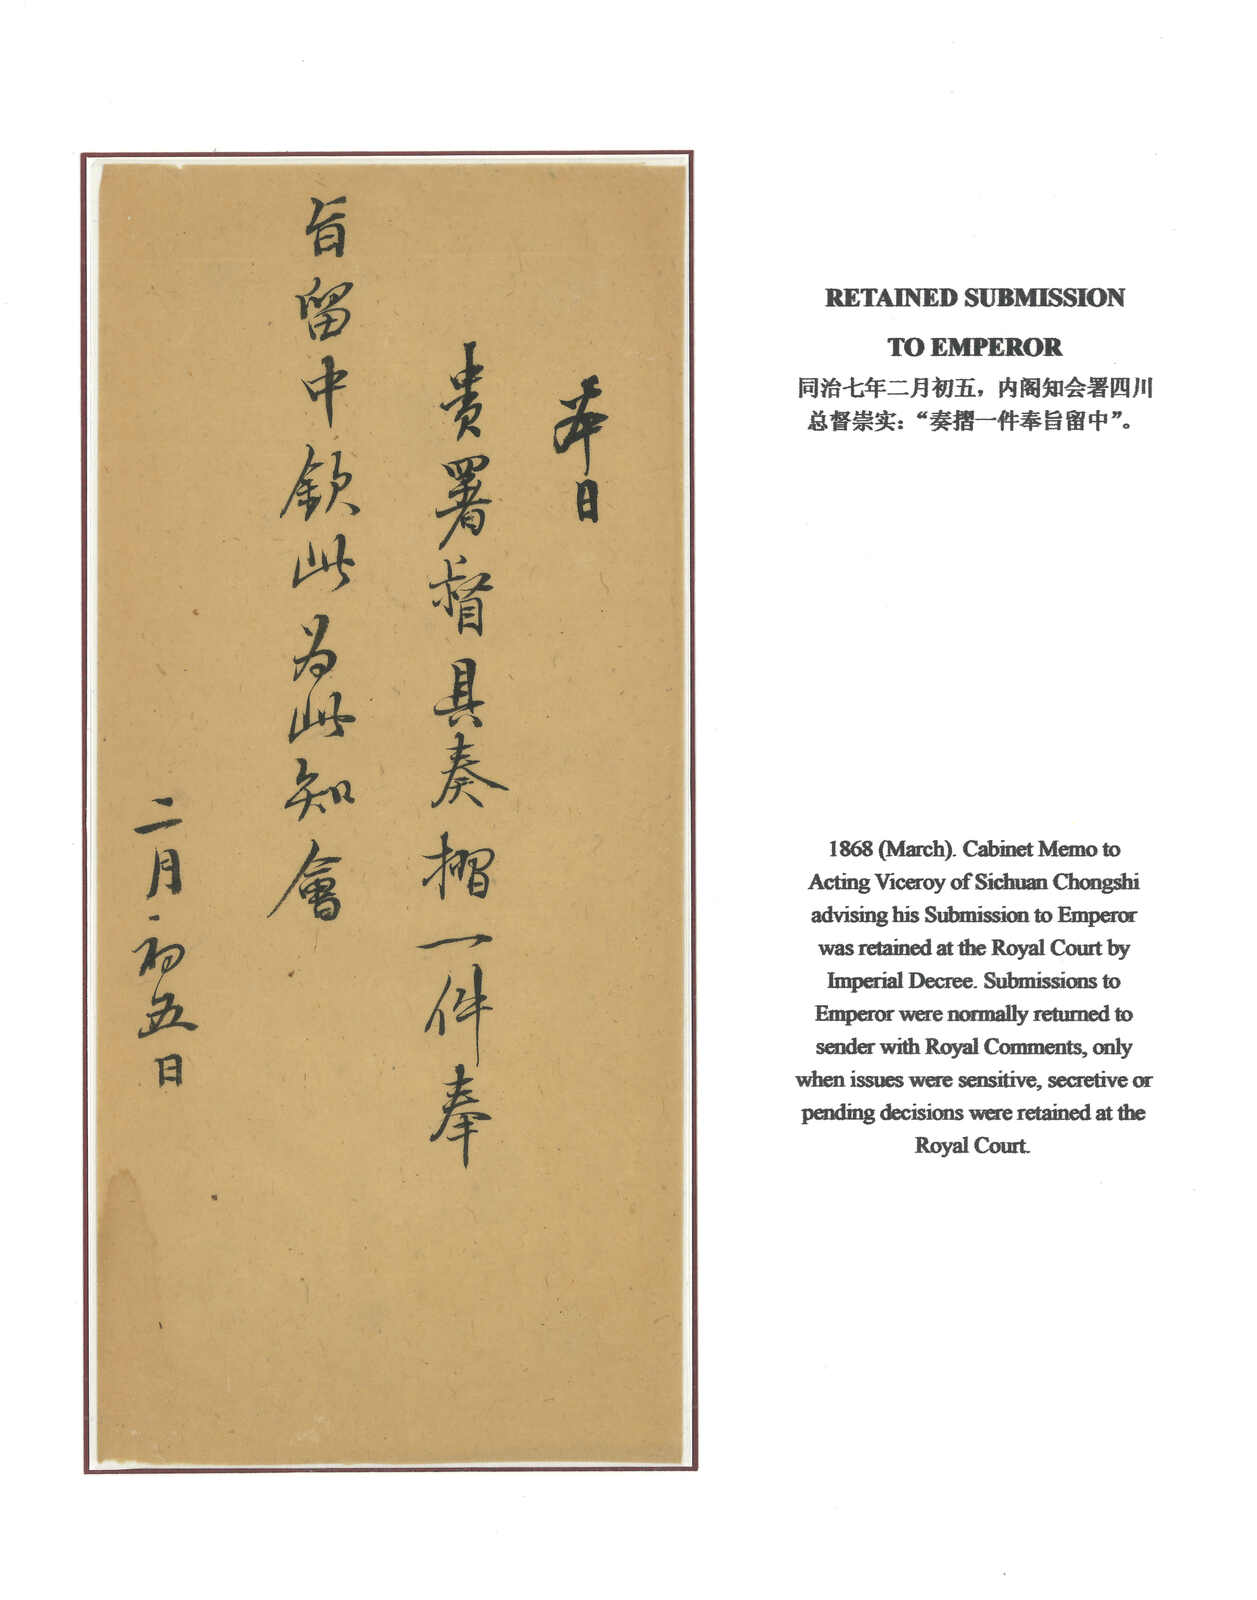 本日
貴署督具奏摺一件奉
旨留中欽此為此知會
二月初五日
RETAINED SUBMISSION
TO EMPEROR
同治七年二月初五，内阁知会署四川
总督崇实：“奏摺一件奉旨留中”。
1868 (March). Cabinet Memo to
Acting Viceroy of Sichuan Chongshi
advising his Submission to Emperor
was retained at the Royal Court by
Imperial Decree. Submissions to
Emperor were normally returned to
sender with Royal Comments, only
when issues were sensitive, secretive or
pending decisions were retained at the
Royal Court.